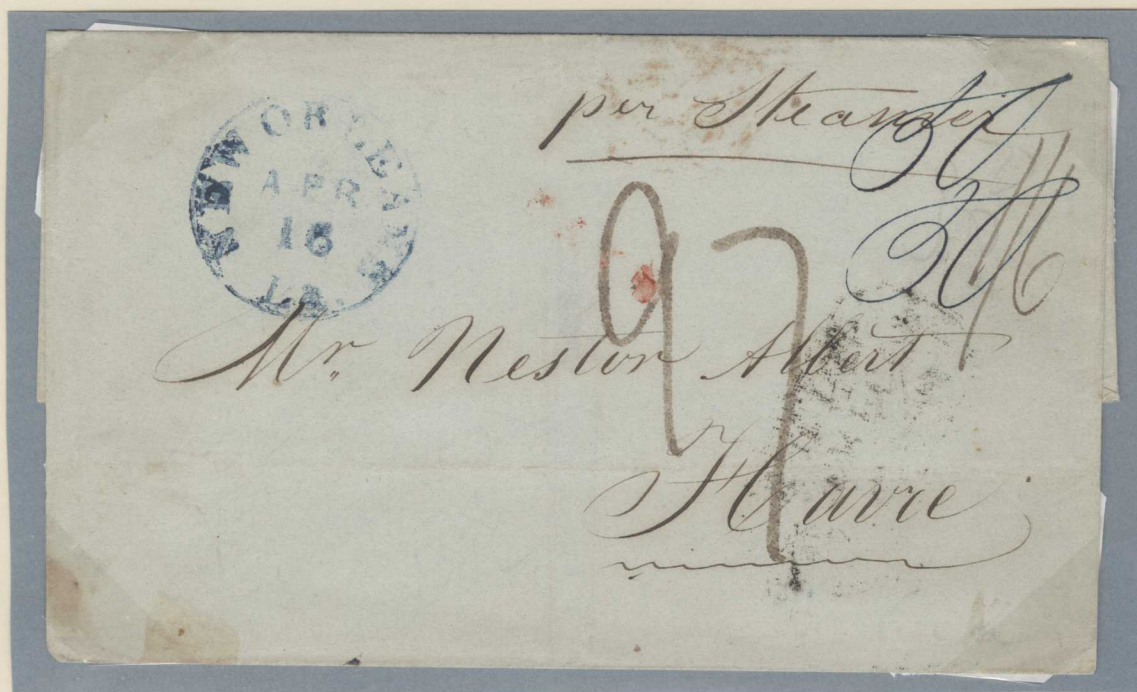 NEW ORLEANS
APR
16
LA.
per Steamer
50
50
97
Mr. Nestor Albert
Havre